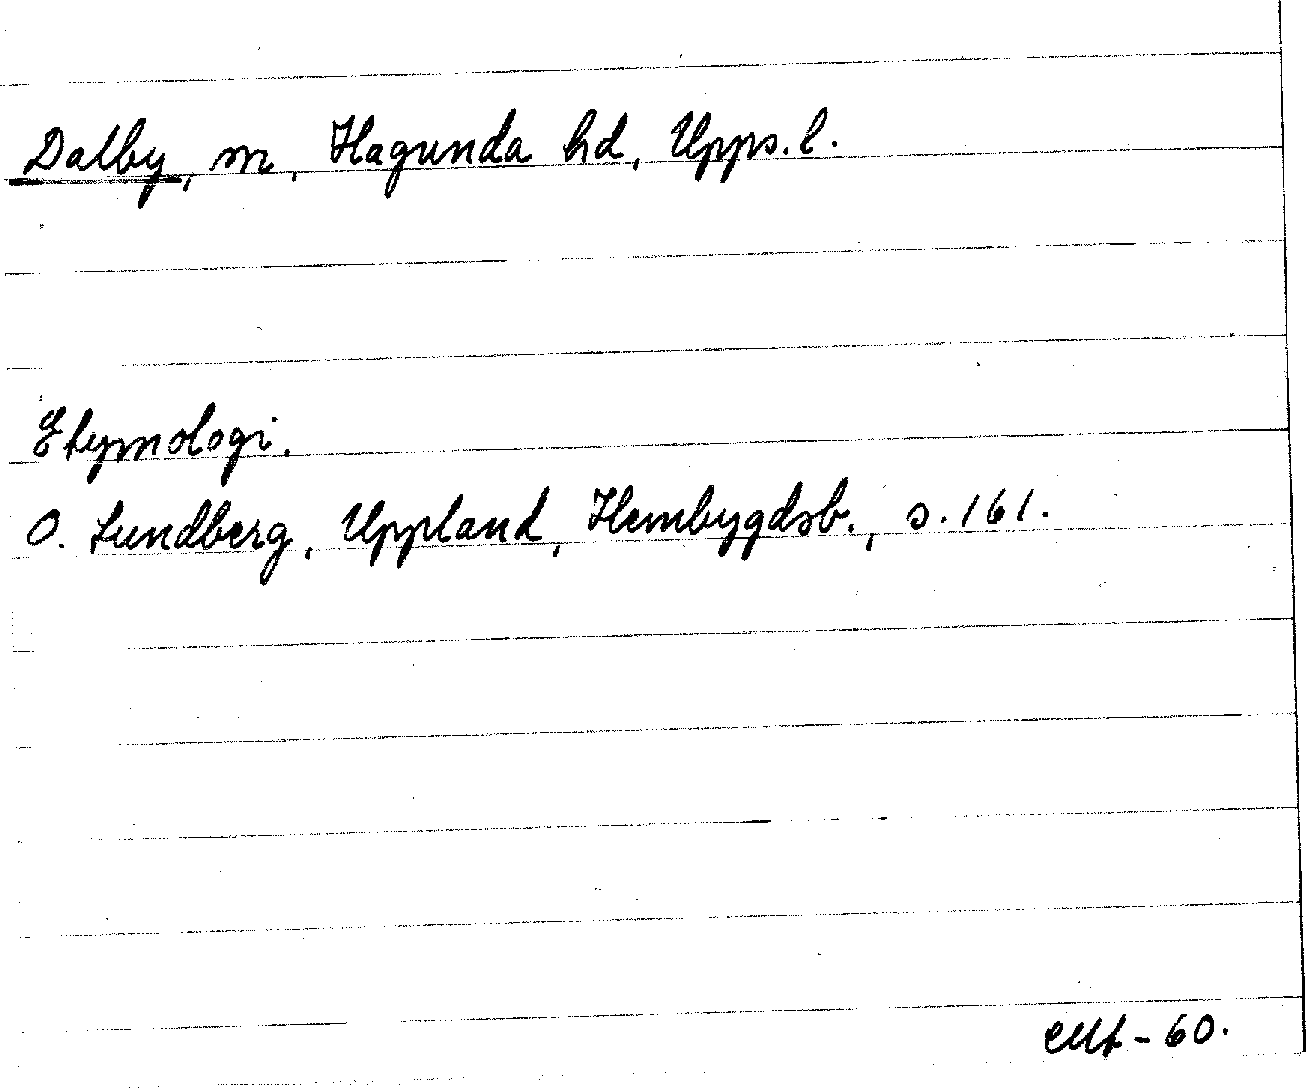 Dalby, sn, Hagunda hd, Upps. l.
Etymologi.
O. Lundberg, Uppland, Hembygdsb., s. 161.
-60.